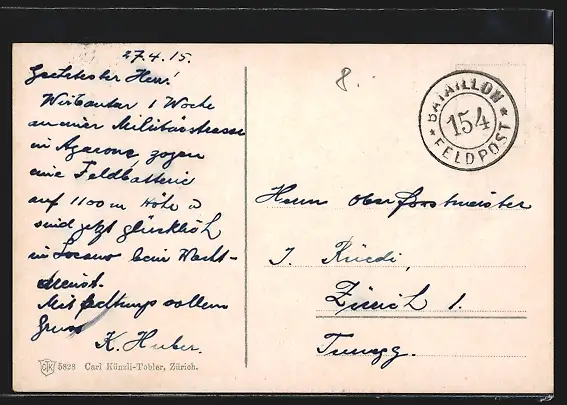 27.4.15.
Geehrtester Herr!
Wir bauten 1 Woche
an einer Militärstrasse
in Agarone, zogen
eine Feldbatterie
auf 1100 m Höhe u
sind jetzt glücklich
in Locarno beim Wacht-
dienst.
Mit achtungsvollem
Gruss
K. Huber.
CTK 5828 Carl Künzli-Tobler, Zürich.
8.
BATAILLON
154
FELDPOST
Herrn Oberforstmeister
J. Rüedi,
Zürich 1.